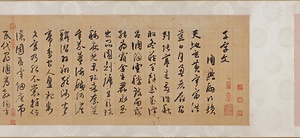 千字文
周興嗣次韻
天地玄黃宇宙洪
荒日月盈昃辰宿
列張寒來暑往秋
收冬藏閏餘成歲律
呂調陽雲騰致雨露
結為霜金生麗水玉
出崑岡劍號巨闕珠
稱夜光果珍李柰菜
重芥薑海鹹河淡鱗
潛羽翔龍師火帝
鳥官人皇始制
文字乃服衣裳推位
讓國有虞陶唐弔
民伐罪周發殷湯